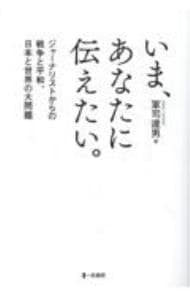 いま、
あなたに
伝えたい。
軍司達男・著
ジャーナリストからの
戦争と平和、
日本と世界の大問題